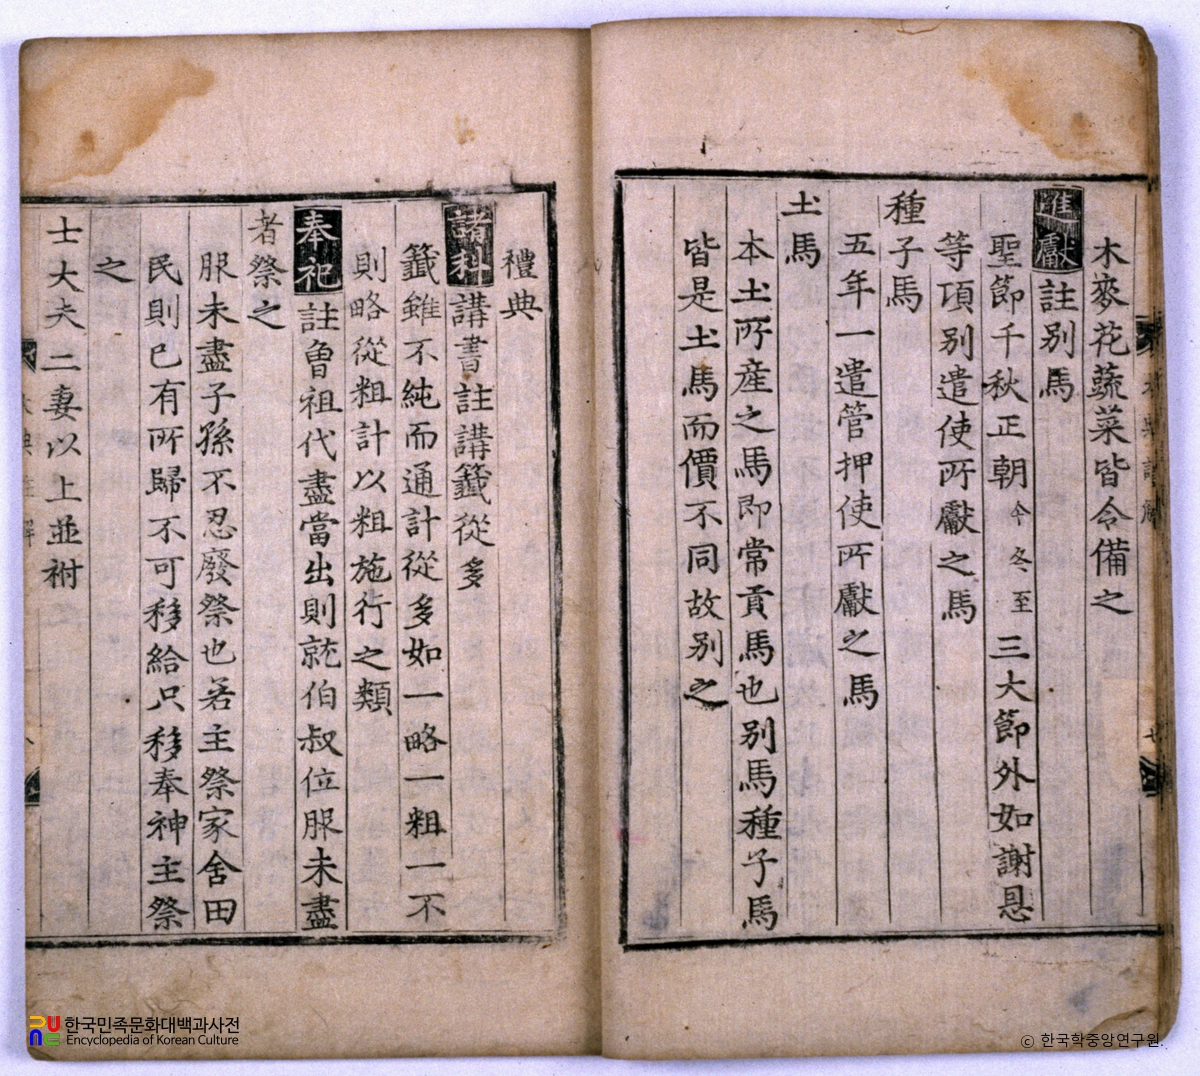 木麥花蔬菜皆令備之
進獻註別馬
聖節千秋正朝今冬至三大節外如謝恩
等項別遣使所獻之馬
種子馬
五年一遣管押使所獻之馬
土馬
本土所產之馬即常貢馬也別馬種子馬
皆是土馬而價不同故別之
禮典
諸科講書註講籤從多
籤雖不純而通計從多如一略一粗一不
則略從粗計以粗施行之類
奉祀註曾祖代盡當出則就伯叔位服未盡
者祭之
服未盡子孫不忍廢祭也若主祭家舍田
民則已有所歸不可移給只移奉神主祭
之
士大夫二妻以上並祔
한국민족문화대백과사전
Encyclopedia of Korean Culture
ⓒ 한국학중앙연구원